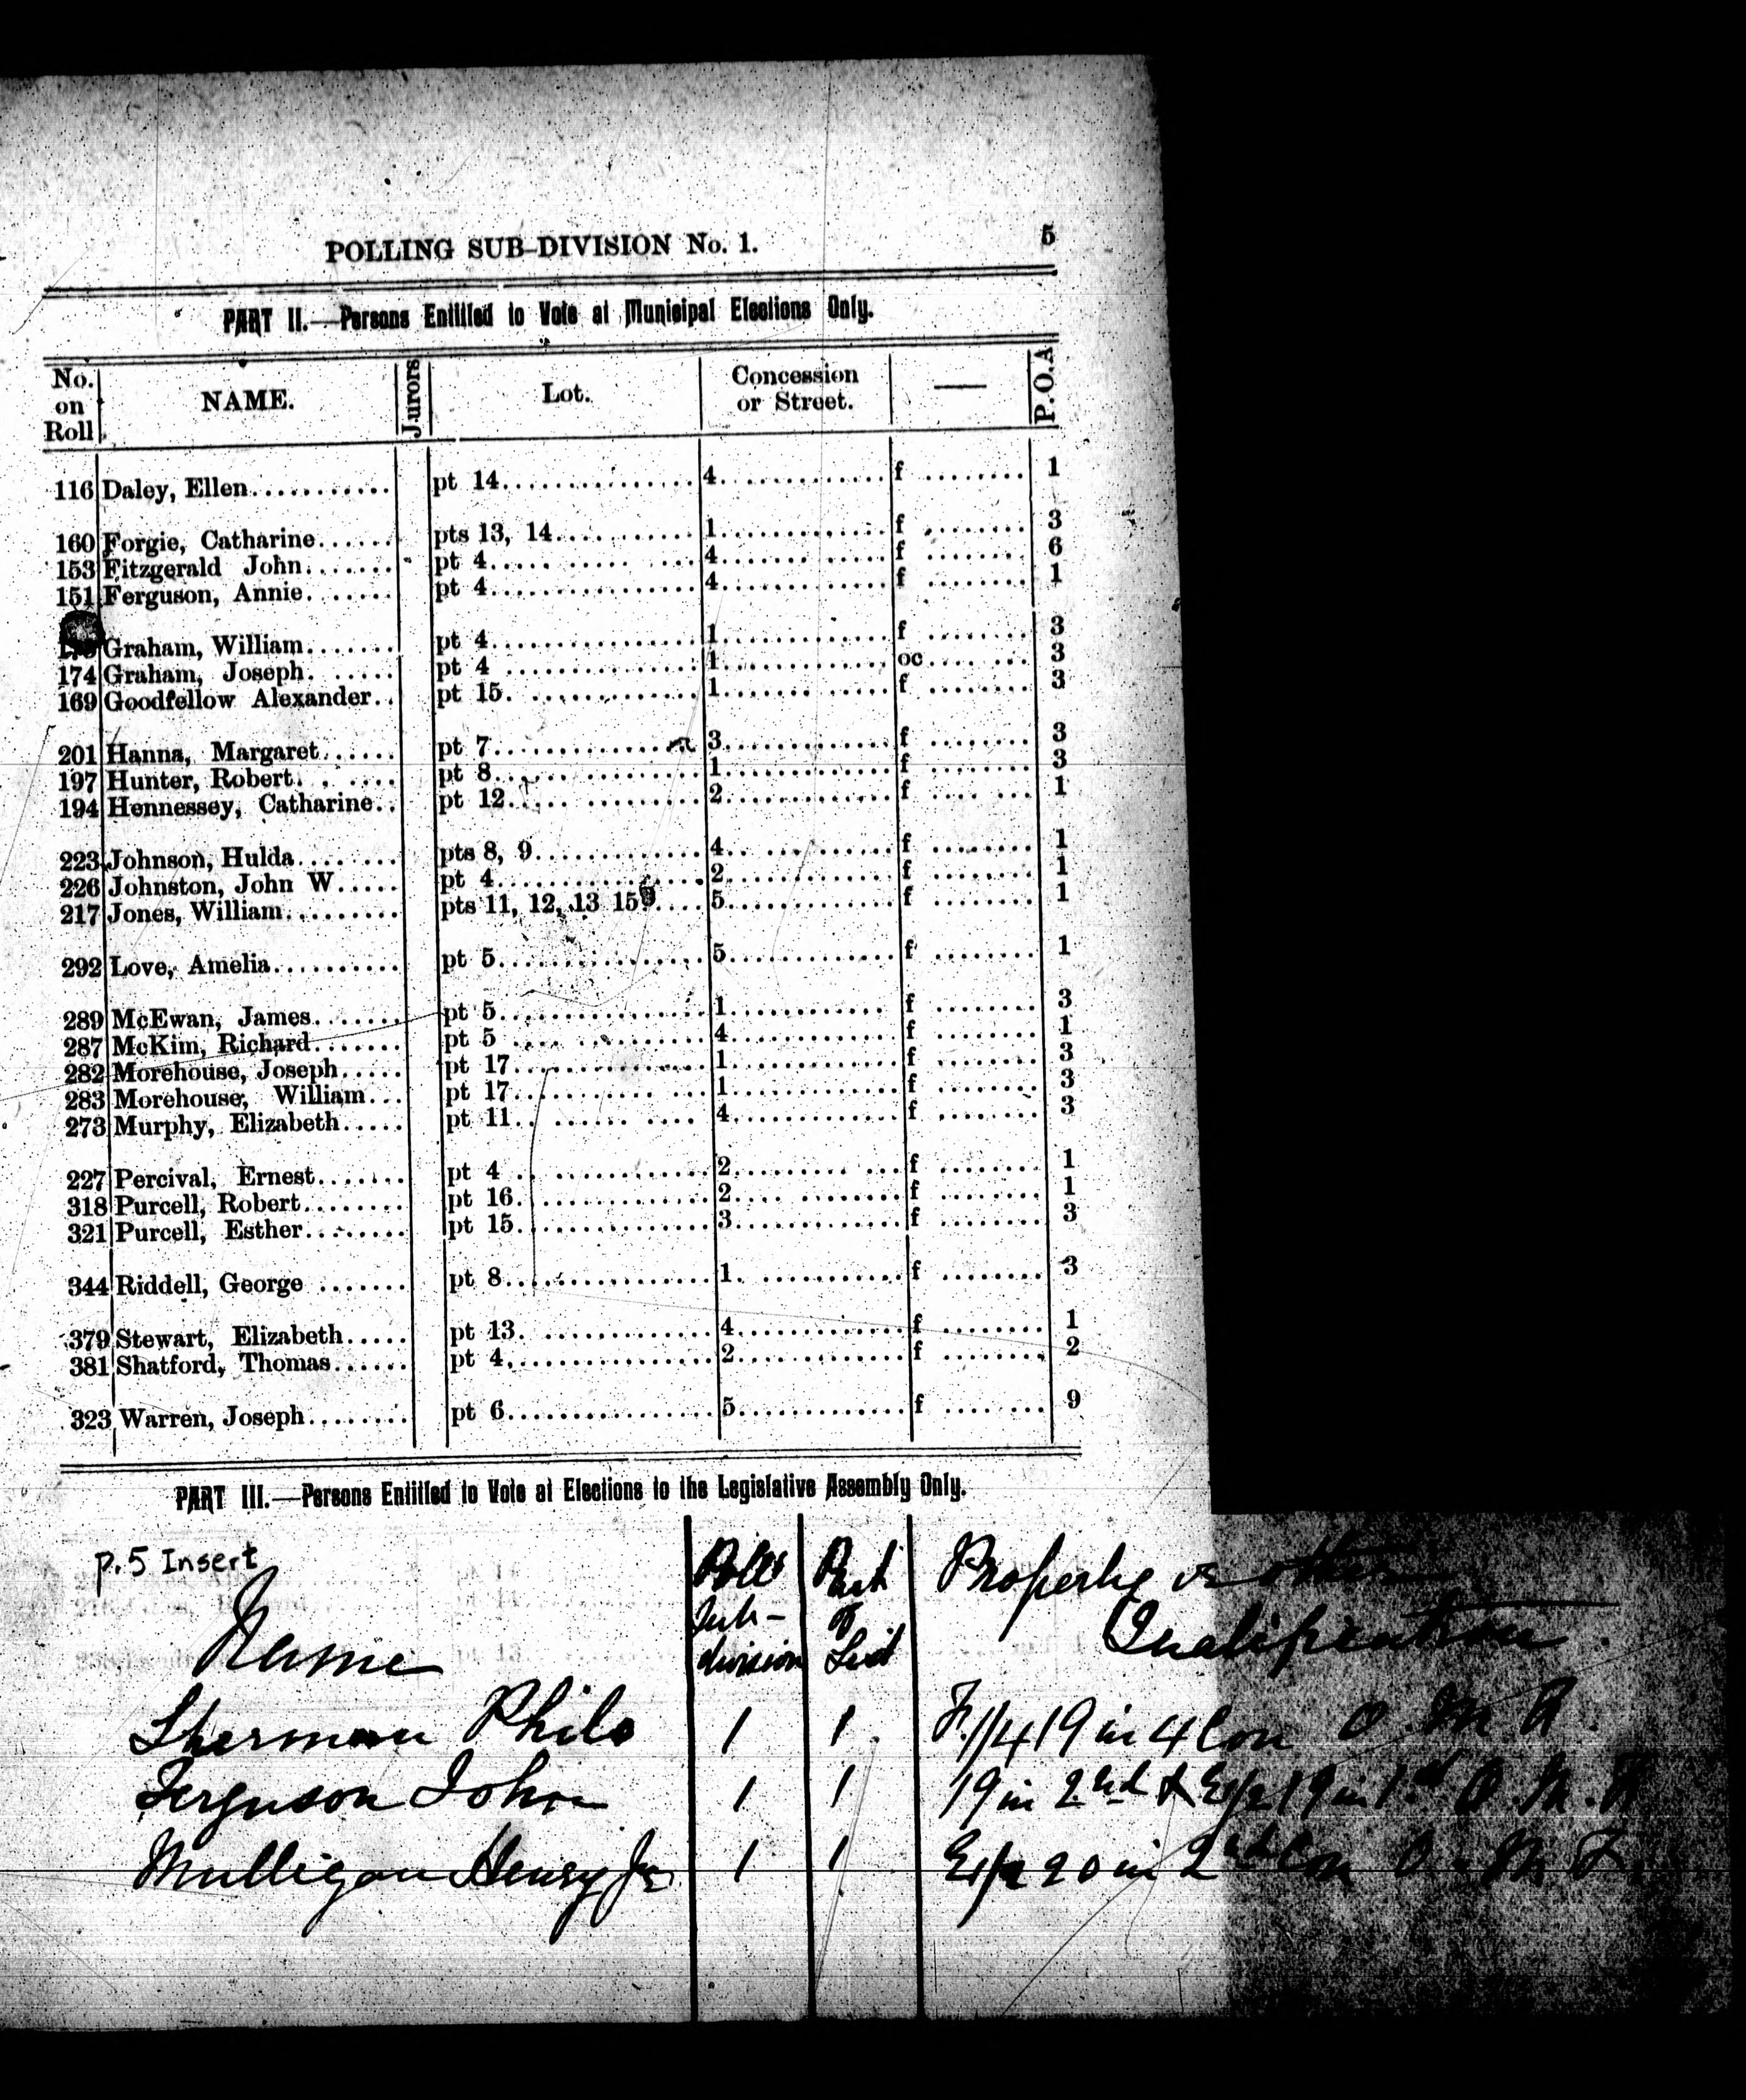 POLLING SUB-DIVISION No. 1. 5
PART II.—Persons Entitled to Vote at Municipal Elections Only.
No. on Roll NAME. Jurors Lot. Concession or Street. — P.O.A
116 Daley, Ellen........... pt 14............... 4............. f ........ 1
160 Forgie, Catharine...... pts 13, 14........... 1............. f ........ 3
153 Fitzgerald John....... pt 4............... 4............. f ........ 6
151 Ferguson, Annie....... pt 4............... 4............. f ........ 1
Graham, William....... pt 4............... 1............. f ........ 3
174 Graham, Joseph....... pt 4 ............... 1............. oc........ 3
169 Goodfellow Alexander.. pt 15............... 1............. f ........ 3
201 Hanna, Margaret...... pt 7............... 3............. f ........ 3
197 Hunter, Robert....... pt 8............... 1............. f ........ 3
194 Hennessey, Catharine.. pt 12............... 2............. f ........ 1
223 Johnson, Hulda........ pts 8, 9............. 4............. f ........ 1
226 Johnston, John W..... pt 4............... 2............. f ........ 1
217 Jones, William......... pts 11, 12, 13 15.... 5............. f ........ 1
292 Love, Amelia.......... pt 5............... 5............. f ........ 1
289 McEwan, James....... pt 5............... 1............. f ........ 3
287 McKim, Richard....... pt 5 ............... 4............. f ........ 1
282 Morehouse, Joseph..... pt 17............... 1............. f ........ 3
283 Morehouse, William... pt 17............... 1............. f ........ 3
273 Murphy, Elizabeth..... pt 11............... 4............. f ........ 3
227 Percival, Ernest....... pt 4............... 2............. f ........ 1
318 Purcell, Robert........ pt 16............... 2............. f ........ 1
321 Purcell, Esther........ pt 15............... 3............. f ........ 3
344 Riddell, George ....... pt 8............... 1............. f ........ 3
379 Stewart, Elizabeth..... pt 13............... 4............. f ........ 1
381 Shatford, Thomas...... pt 4............... 2............. f ........ 2
323 Warren, Joseph........ pt 6............... 5............. f ........ 9
PART III.—Persons Entitled to Vote at Elections to the Legislative Assembly Only.
p.5 Insert
Name Sub-division Part of List Property or other Qualification
Sherman Philo 1 1 F. 1/4 19 in 4 Con O. M. F.
Ferguson John 1 1 19 in 2nd & E1/2 19 in 1st O. M. F
Mulligan Henry Jr 1 1 E1/2 20 in 2nd Con O. M. F.